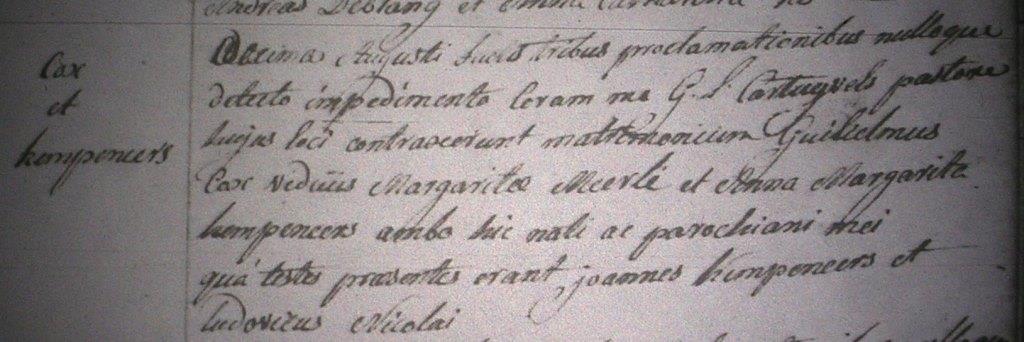 Andreas Deblang et Emma
Cox
et
kempeneers
Decima Augusti factis tribus proclamationibus nulloque
detecto impedimento coram me G. L. Cartuyvels pastore
hujus loci contraxerunt matrimonium Guilielmus
Cox viduus Margaritae Meerlé et Anna Margarita
kempeneers ambo hic nati ac parochiani mei
quá testes praesentes erant joannes kempeneers et
ludovicus Nicolai